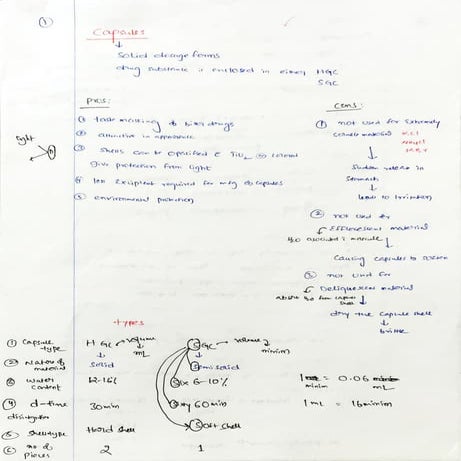 ①
Capsules
solid dosage forms
drug substance is enclosed in either HGC
SGC
Pros:
① taste masking of bitter drugs
② attractive in appearance
③ shells can be opacified c̄ TiO₂ or colored
Give protection from light
④ less excipient required for mfg of capsules
⑤ environmental protection
light
Cons:
① not used for extremely
soluble material KCl
KBr
Sudden release in
stomach
leads to irritation
② not used for
Efflorescent material
H₂O associated c̄ molecule
Causing capsules to soften
③ not used for
Deliquescent material
absorb H₂O from capsule
shell
dry the capsule shell
brittle
types
① Capsule type HGC → volume mL SGC → volume minim
② Nature of material solid Semisolid
③ water content 12-16% Six 6-10%
④ d-time disintegration 30 min Sixty 60 min
⑤ Shell type Hard shell Soft shell
⑥ no of pieces 2 1
1 minim = 0.06 mL
1 mL = 16 minim